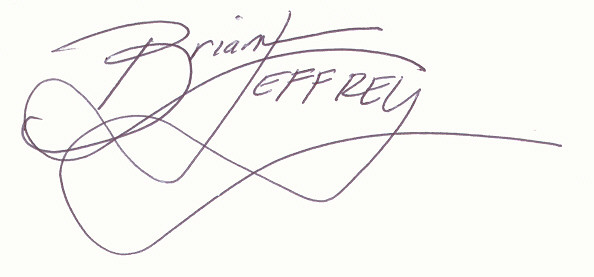 Brian
JEFFREY